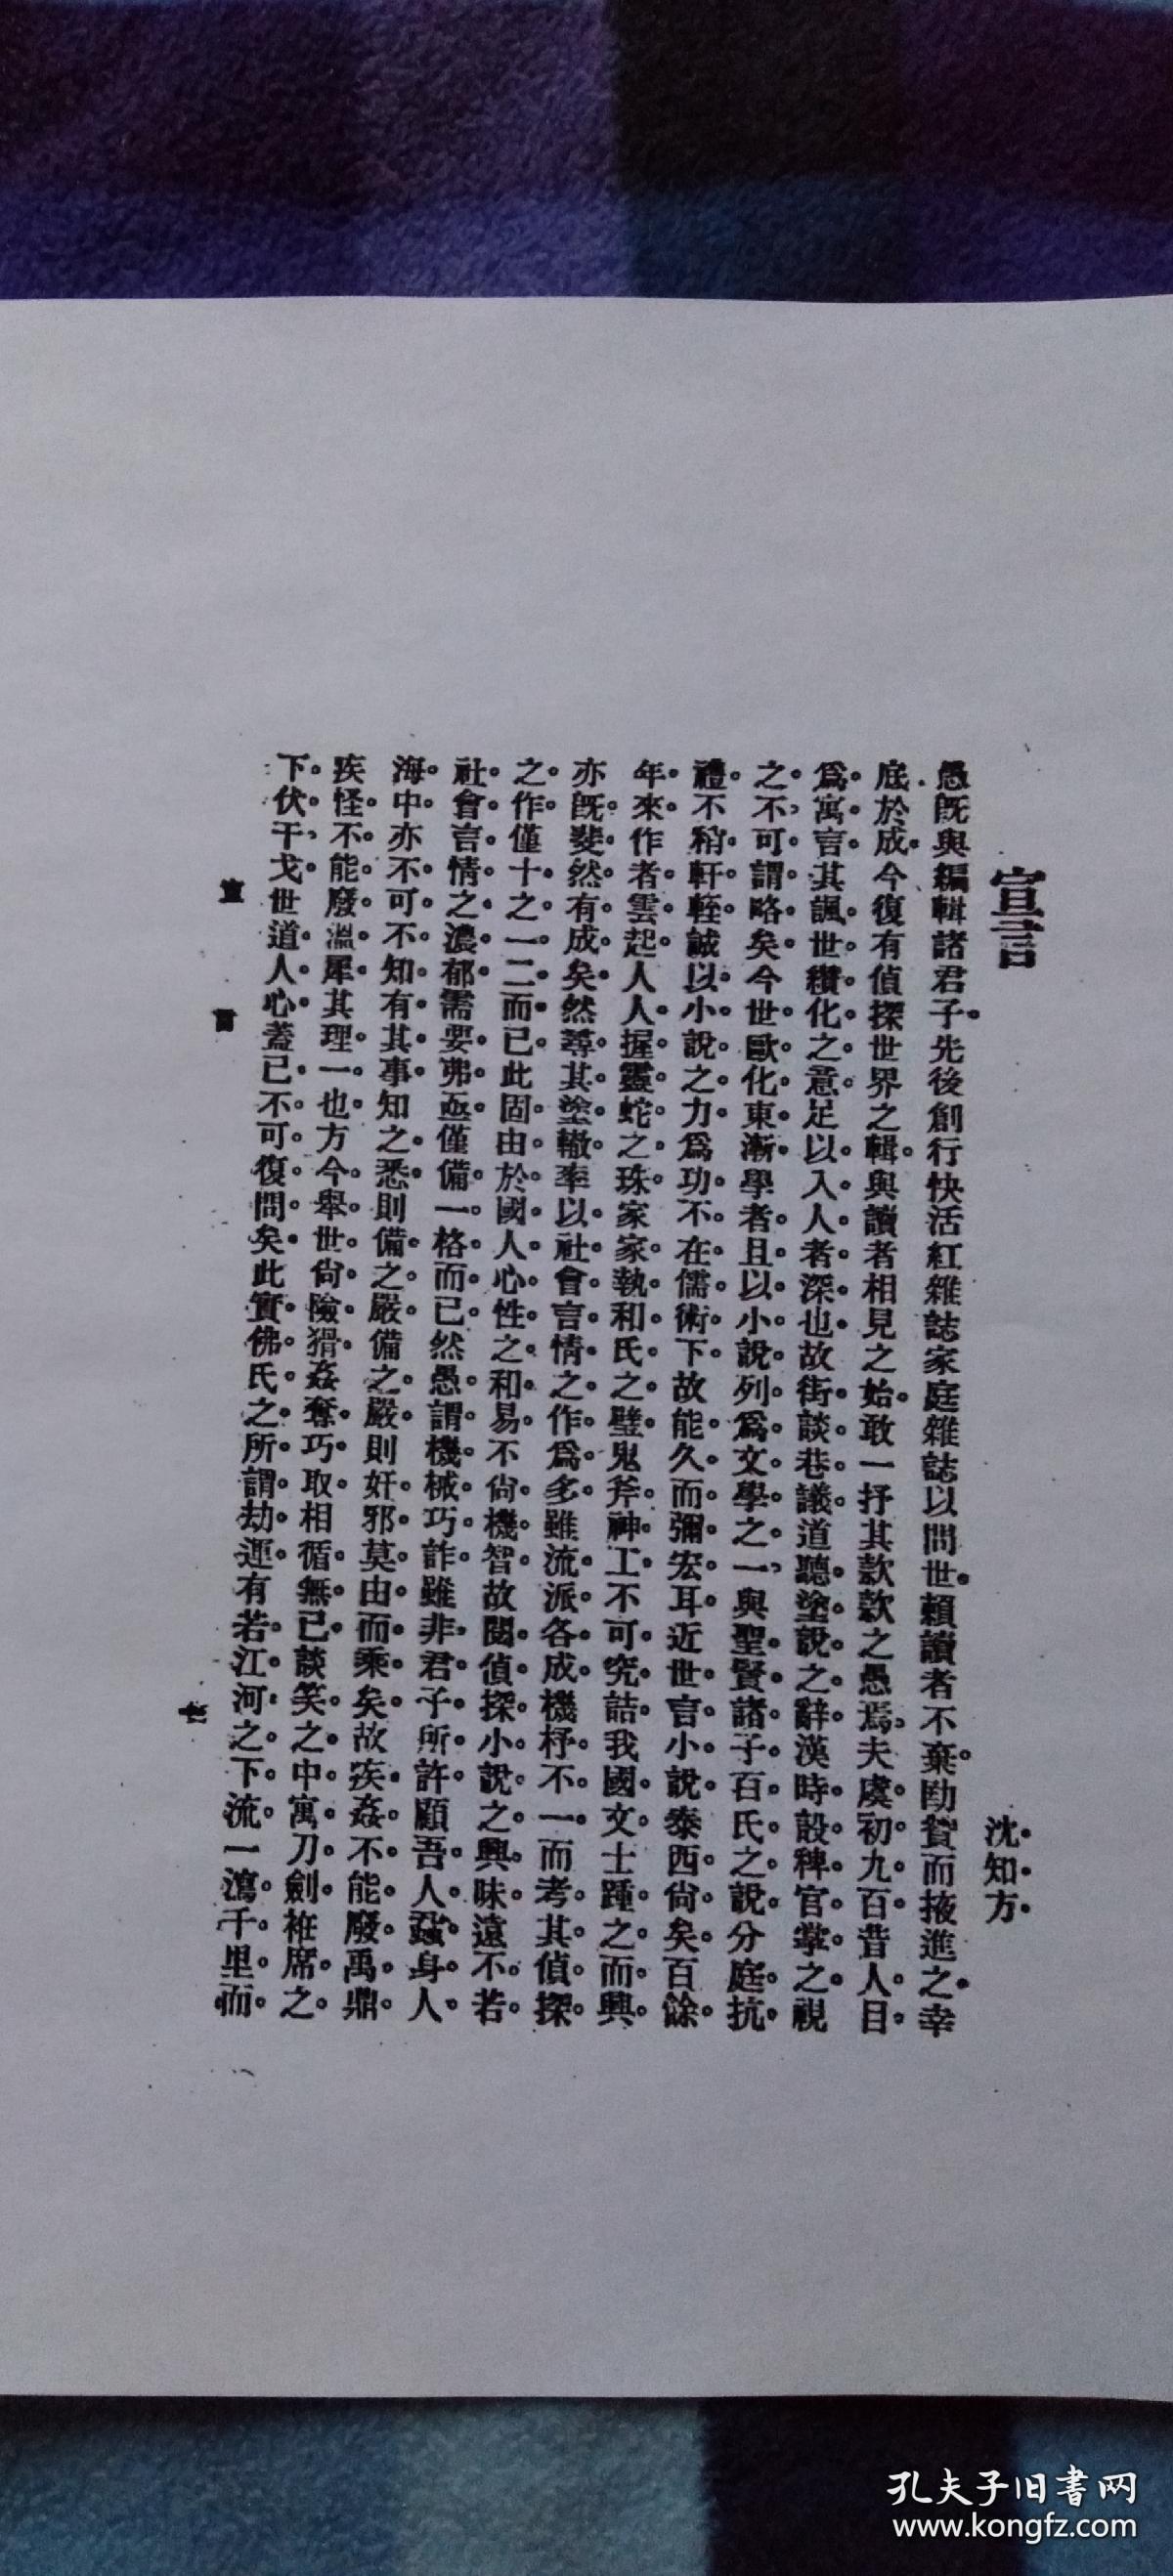 宣言
沈知方
愚旣與編輯諸君子先後創行快活紅雜誌家庭雜誌以問世賴讀者不棄助贊而掖進之幸
底於成今復有偵探世界之輯與讀者相見之始敢一抒其款款之愚焉夫虞初九百昔人目
爲寓言其諷世積化之意足以入人者深也故街談巷議道聽塗說之辭漢時設稗官掌之視
之不可謂略矣今世歐化東漸學者且以小說列爲文學之一與聖賢諸子百氏之說分庭抗
禮不稍軒輊誠以小說之力爲功不在儒術下故能久而彌宏耳近世言小說泰西尙矣百餘
年來作者雲起人人握靈蛇之珠家家執和氏之璧鬼斧神工不可究詰我國文士踵之而興
亦旣斐然有成矣然尋其塗轍率以社會言情之作爲多雖流派各成機杼不一而考其偵探
之作僅十之一二而已此固由於國人心性之和易不尙機智故閱偵探小說之興味遠不若
社會言情之濃郁需要弗亟僅備一格而已然愚謂機械巧詐雖非君子所許顧吾人蝨身人
海中亦不可不知有其事知之悉則備之嚴備之嚴則奸邪莫由而乘矣故疾姦不能廢禹鼎
疾怪不能廢溫犀其理一也方今舉世尙險猾姦奪巧取相循無已談笑之中寓刀劍袵席之
下伏干戈世道人心蓋已不可復問矣此實佛氏之所謂劫運有若江河之下流一瀉千里而
宣言
七
孔夫子旧书网
www.kongfz.com